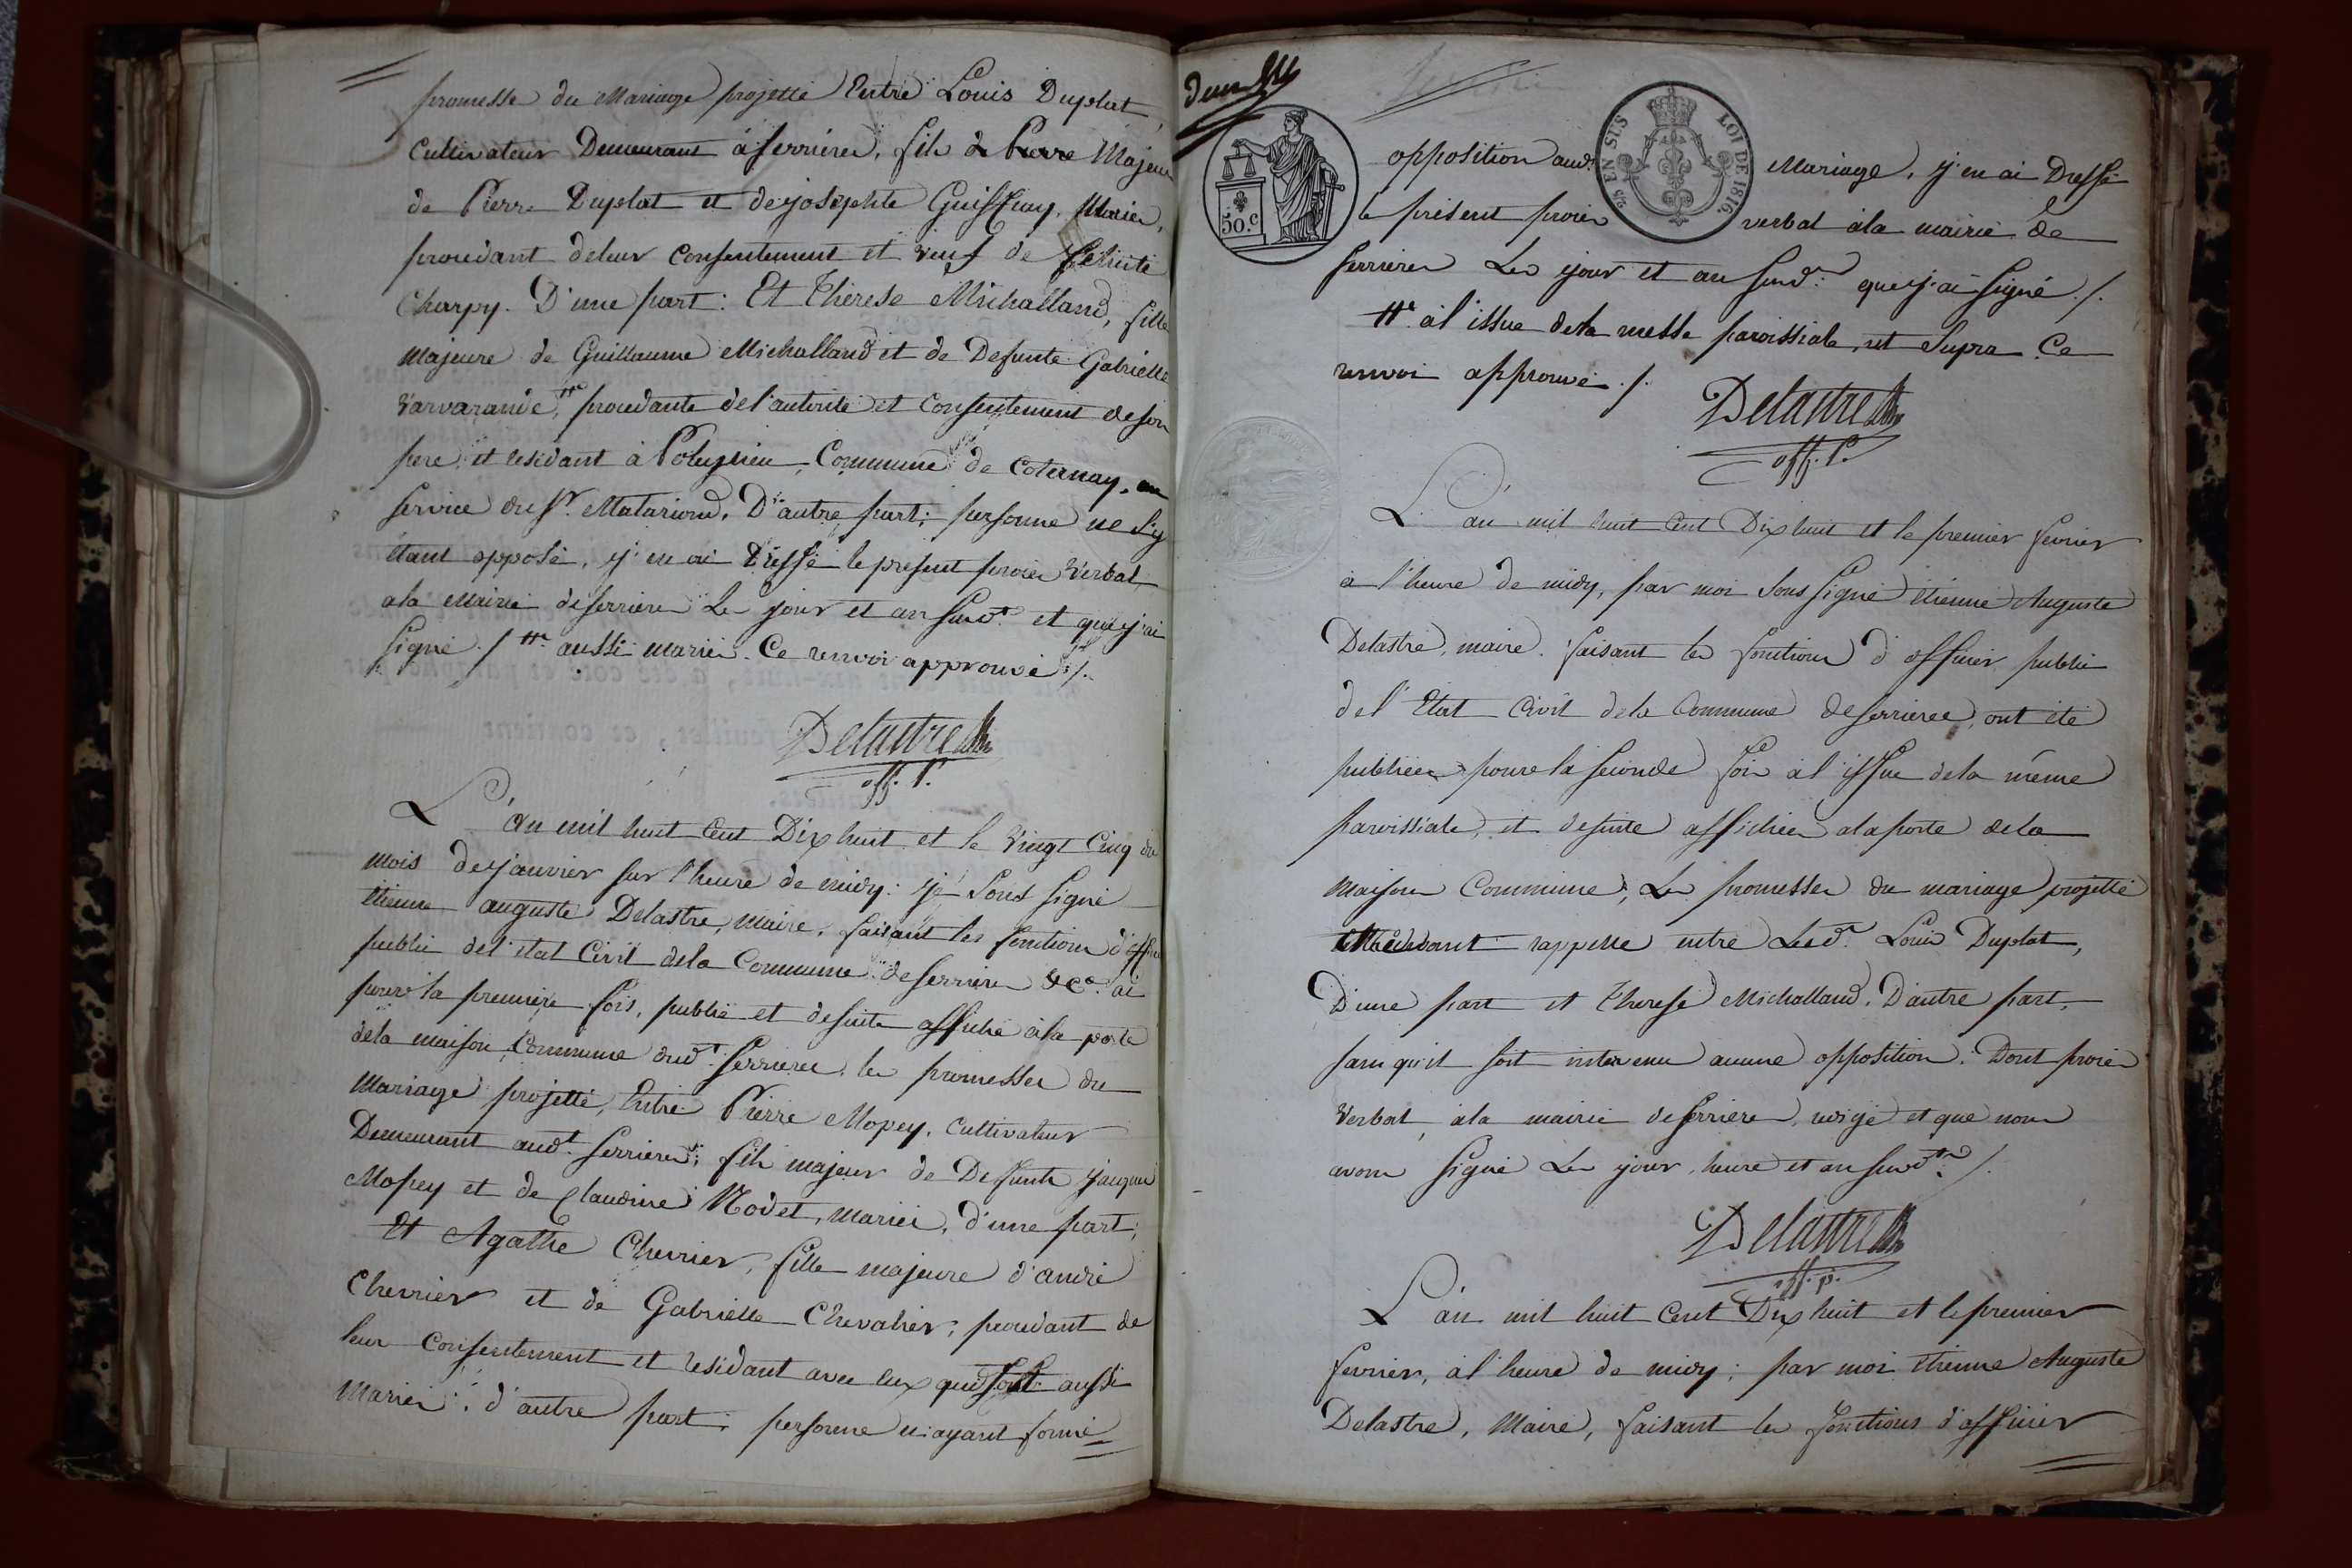 promesse du Mariage projetté Entre Louis Duplat,
Cultivateur Demeurant à serrieres, fils de Pierre Majeur
de Pierre Duplat et de josephte Guiffray, Mariés,
procedant deleur consentement et veuf de felicité
Charpy. D'une part: Et Thérese Michalland, fille
majeure de Guillaume Michalland et de Defunte Gabrielle
Varvarande, procedante de l'autorité et consentement deson
pere, et residant à Poleyrieu, Commune de Coternay, au
service du Sr. Matariond, D'autre part; personne ne s'y
étant opposé, j'en ai Dressé le present procès Verbal
ala Mairie deserrieres Les jour et an susdt. et que j'ai
signé ./ aussi mariés. Ce renvoi approuvé ./.
Delastre
off. P.
L'an mil huit Cent Dix huit et le Vingt Cinq du
mois de janvier sur l'heure de midy: je sous signé
Etienne auguste Delastre, maire, faisant les fonctions d'officier
public del'etat Civil dela Commune deserrieres &ca. ai
pour la premiere fois, publié et desuite affiché à la porte
dela maison Commune dudt. Serrieres, les promesses du
Mariage projetté, Entre Pierre Mopey, Cultivateur
Demeurant audt. Serrieres, fils majeur de Defunt jacques
Mopey et de Claudine Nodet, mariés, d'une part;
Et Agathe Chevrier, fille majeure d'andré
Chevrier et de Gabrielle Chevalier, procedant de
leur consentement et residant avec eux qui sont aussi
Mariés; d'autre part. personne n'ayant formé
deux
50.c
25 EN SUS
LOI DE 1816.
opposition audt. Mariage, j'en ai Dressé
le présent procès verbal àla mairie de
serrieres Les jour et an susdt. que j'ai signé ./.
à l'issue dela messe paroissiale, ut Supra. Ce
renvoi approuvé ./.
Delastre
off. P.
L'an mil huit Cent Dix huit et le premier fevrier
à l'heure de midy, par moi Sous signé étienne Auguste
Delastre, maire, faisant les fonctions d'officier public
del'Etat Civil dela Commune deserrieres, ont été
publiées pour la seconde fois à l'issue dela même
paroissiale, et desuite affichées ala porte dela
maison Commune, Les promesses du mariage projetté
rappellé entre Lesdt. Louis Duplat,
D'une part et Therese Michalland, D'autre part,
sans qu'il soit intervenu aucune opposition. Dont procès
Verbal, àla mairie deserrieres, redigé et que nous
avons signé Les jour, heure et an susdts. /.
Delastre
off. p.
L'an mil huit Cent Dix huit et le premier
fevrier, à l'heure de midy; par moi Etienne Auguste
Delastre, Maire, faisant les fonctions d'officier